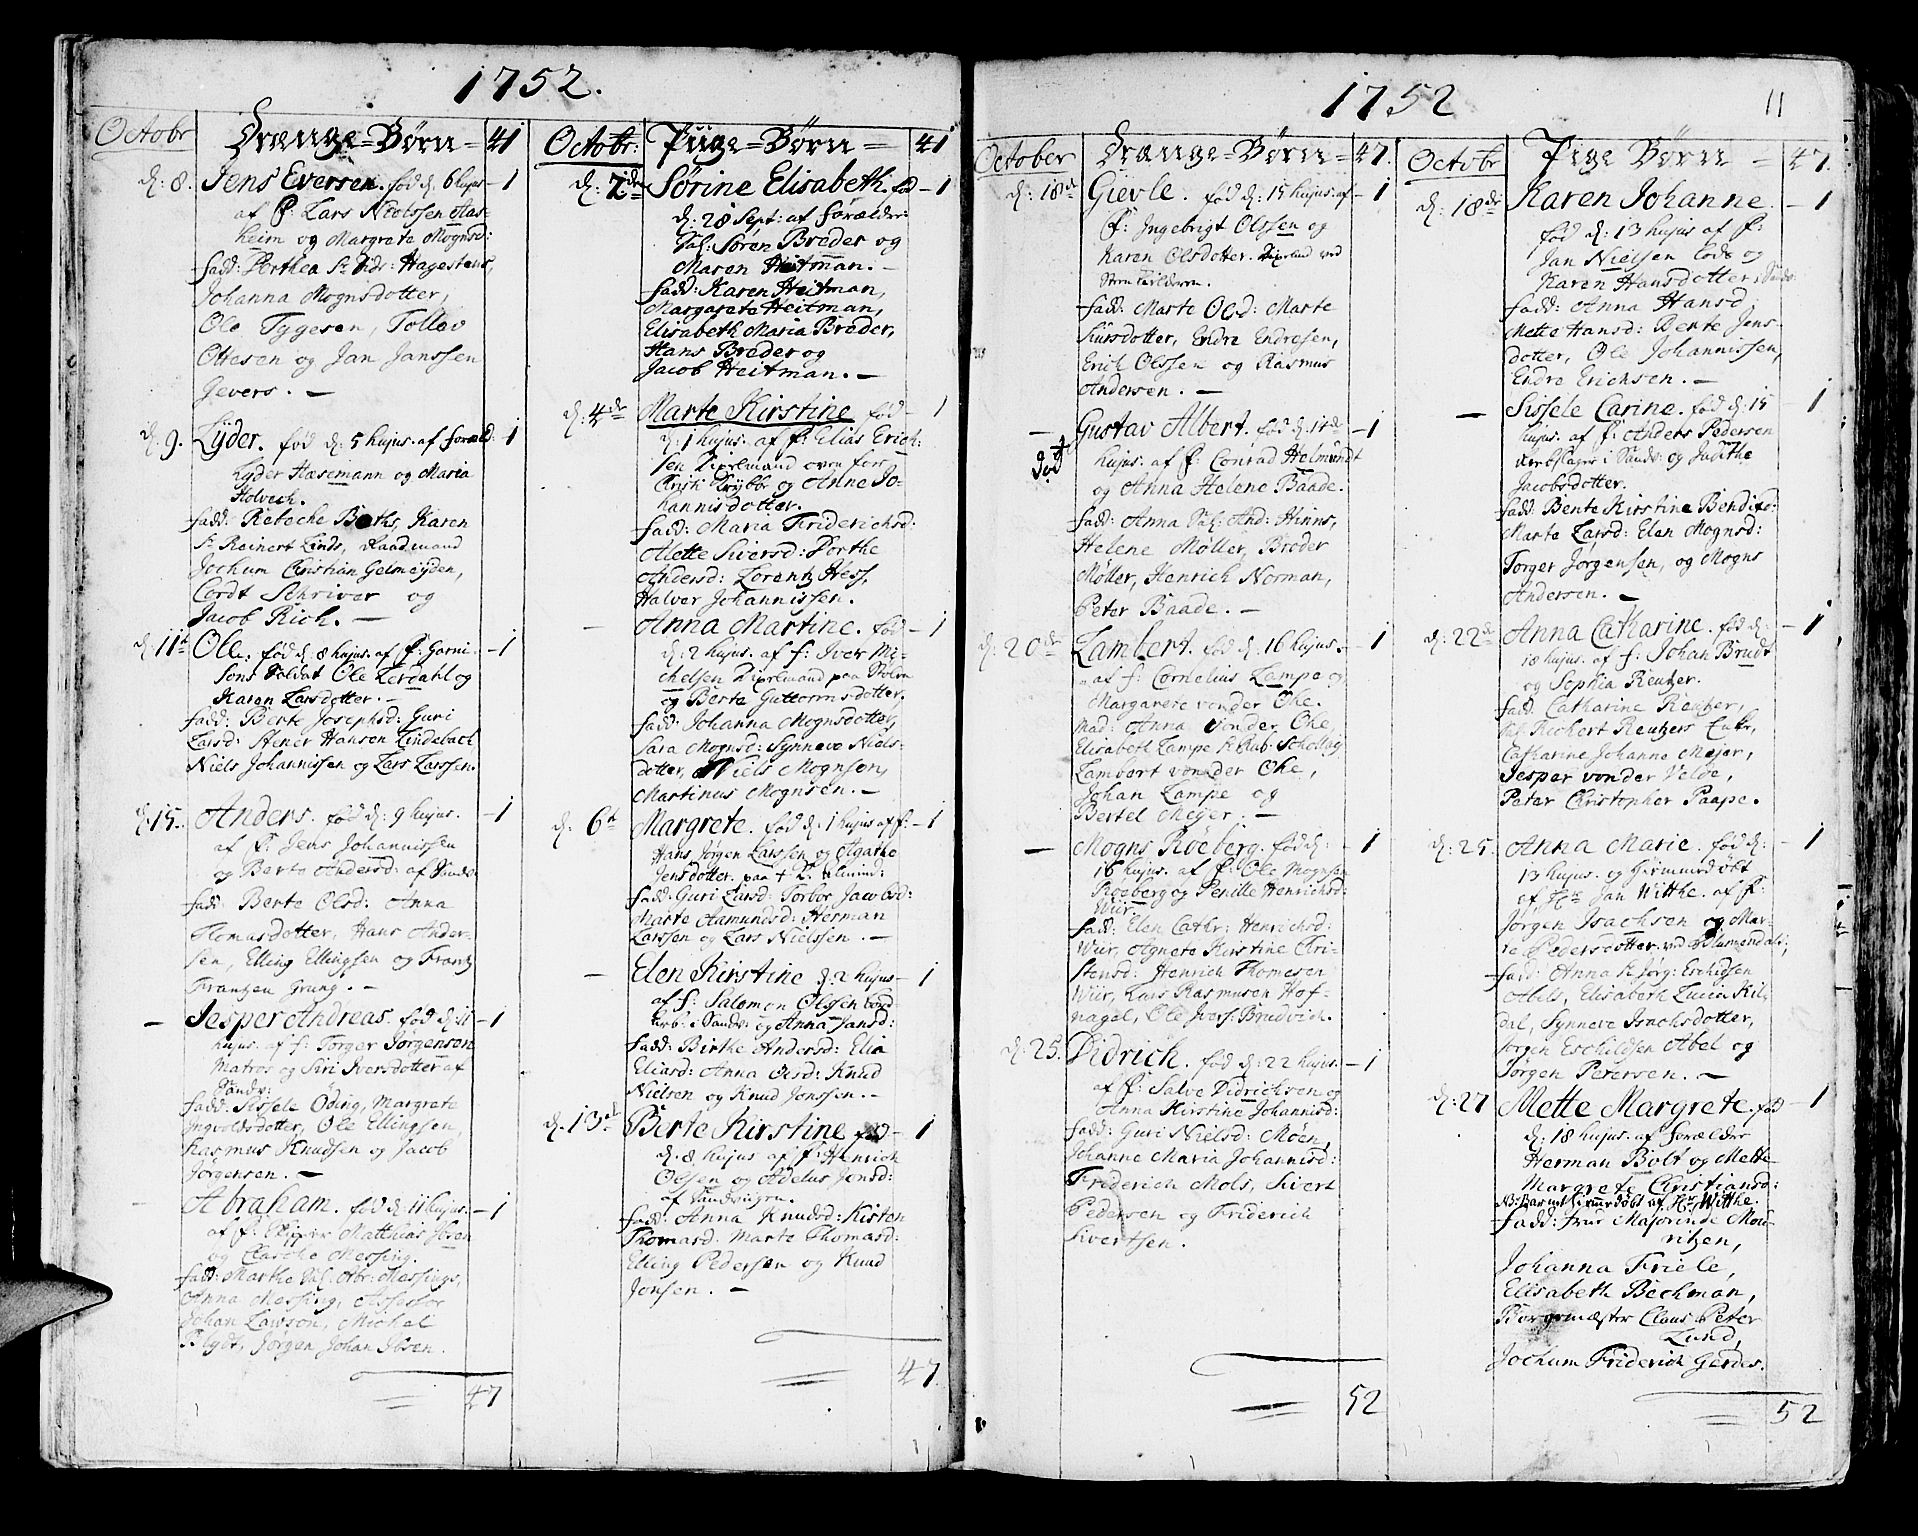 1752.
Octobr
Drænge=Børn = 41
d: 8. Jens Eversen. fød d. 6 hujus - 1
af f: Lars Nielssen Aas-
heim og Margrete Mognsd:
fadd: Dorthea Hagestens,
Johanna Mognsdotter,
Ole Tygesen, Tollev
Ottesen og Jan Janssen
Gevers. —
d. 9. Lyder. fød d: 5 hujus. af foræld: - 1
Lyder Hasemann og Maria
Holveck.
fadd: Rebecke Boths, Karen
Sr Reinert Linds, Raadmand
Jochum Christian Gelmeyden,
Cordt Schriver og
Jacob Rich. —
d: 11t Ole. fød d: 8 hujus. af f: Garni - 1
sons Soldat Ole Lerdahl og
Karen Larsdotter. -
fadd: Berte Josephsd: Guri
Larsd: Stener Hansen Lindebach
Niels Johannissen og Lars Larssen.
d: 15. Anders. fød d: 9 hujus. - 1
af f: Jens Johannissen
og Berte Andersd: af Sandv:
fadd: Berte Olsd: Anna
Thomasdotter, Hans Ander-
sen, Elling Ellingsen og Frantz
Frantzen Grung. -
— Jesper Andreas. fød d. 11 - 1
hujus. af f: Torger Jørgensen
Matros og Siri Iversdotter af
Sandv:
fadd: Sissele Oding, Margrete
Ingvoldsdotter, Ole Ellingsen,
Rasmus Knudsen og Jacob
Jørgensen. —
— Abraham. fød d. 11 hujus. - 1
af f: Skipper Matthias
og Messing.
fadd: Marthe Sal: Abr: Messings,
Anna Messing, Assessor
Johan Lawson, Michel
Blydt, Jørgen Johan Ibsen.
47
Octobr:
Piige=Børn = 41
d: 7de Sørine Elisabeth. fød - 1
d: 28 Sept: af forælder:
Sal: Søren Breder og
Maren Heitman. -
fadd: Karen Heitman,
Margarete Heitman,
Elisabeth Maria Breder,
Hans Breder og
Jacob Heitman. —
d: 4de Marte Kirstine fød - 1
d: 1 hujus. af f: Elias Erich:
sen oven for
Christi Krybbe og Anne Jo-
hannisdotter.
fadd: Maria Friderichsd:
Alette Siversd: Dorthe
Andersd: Lorentz Hess,
Halver Johannissen.
— Anna Martine. fød - 1
d: 2 hujus. af f: Iver Mi-
chelsen paa
og Berte Guttormsdotter,
fadd: Johanna Mognsdotter,
Sara Mognsd: Synneve Niels-
dotter, Niels Mognsen,
Martinus Mognsen. —
d: 6t Margrete. fød d. 1 hujus af f: - 1
Hans Jørgen Larssen og Agathe
Jensdotter. paa
fadd: Guri Larsd: Torbor Jacobsd:
Marte Aamundsd: Herman
Larssen og Lars Nielssen. —
— Elen Kirstine d: 2 hujus - 1
af f: Salomon Olssen
i Sandv: og Anna Jansd:
fadd: Birthe Andersd: Elia
Eliasd: Anna Olsd: Knud
Nielsen og Knud Jonssen. -
d. 13de Berte Kirstine fød - 1
d. 8 hujus af f: Henrich
Olsen og Adelus Jonsd:
af Sandvigen.
fadd: Anna Knudsd: Kirsten
Thomasd. Marte Thomasd:
Elling Pedersen og Knud
Jonsen. —
47.
1752
11
October
Drænge=Børn = 47.
d: 18de Gievle. fød d: 15 hujus. af - 1
f: Ingebrigt Olssen og
Karen Olsdotter. ved
fadd: Marte Old: Marte
Siursdotter, Endre Endresen,
Erich Olssen og Rasmus
Andersen. —
— Gustav Albert. fød d. 14de - 1
hujus. af f: Conrad Helmundt
og Anna Helene Baade.
fadd: Anna Sal: And: Hinns,
Helene Møller, Broder
Møller, Henrich Norman,
Peter Baade. —
d: 20de Lambert. fød d: 16 hujus. - 1
af f: Cornelius Lampe og
Margarete vonder Ohe.
Mad: Anna vonder Ohe,
Elisabeth Lampe
Lambert vonder Ohe,
Johan Lampe og
Bertel Meyer. —
— Mogns Røeberg. fød d: - 1
16 hujus. af f: Ole Mognsen
Røeberg og Penille Henrichsd:
Wiir.
fadd: Elen Cathr: Henrichsd:
Wiir, Agnete Kirstine Chri-
stensd: Henrich Thomesen
Wiir, Lars Rasmusen Hof-
nagel, Ole Ivers: Brudvich.
d: 25. Didrich. fød d: 22 hujus. - 1
af f: Salve Didrichsen og
Anna Kirstine Johannisd:
fadd: Guri Nielsd: Møen,
Johanne Maria Johannisd:
Friderich Mols, Sivert
Pedersen og Friderich
Sivertsen.
52
Octobr
Pige Børn = 47.
d: 18de Karen Johanne. - 1
fød d: 13 hujus af f:
Jan Nielsen Lods og
Karen Hansdotter i Sandv:
fadd: Anna Hansd:
Mette Hansd: Berte Jens-
dotter, Ole Johannissen,
Endre Erichsen. —
— Sissele Carine. fød d: 15 - 1
hujus. af f: Anders Pedersen
i Sandv: og Judithe
Jacobsdotter.
fadd: Bente Kirstine
Marte Larsd: Elen Mognsd:
Torger Jørgensen, og Mogns
Andersen. —
d: 22de Anna Catharine. fød d: - 1
18 hujus. af f: Johan Brudt
og Sophia Reutzer.
fadd: Catharine Reutzer,
Sal Richert Reutzers Enke,
Catharine Johanne Mejer,
Jesper vonder Velde,
Peter Christopher Paape.
d: 25. Anna Marie. fød d: - 1
13 hujus. og hiemmedøbt
af Hr Jan Witthe. af f:
Jørgen Isachsen og Mar-
te Pedersdotter. ved Blumendal:
fadd: Anna Sr Jørg: Eschidsen
Abels, Elisabeth Lucia Kil-
dal, Synneve Isachsdotter,
Jørgen Eschildsen Abel og
Jørgen Petersen. —
d: 27 Mette Margrete. fød - 1
d: 18 hujus. af forælder
Herman Bolt og Mette
Margrete Christiansd:
NB: Barnet hiemmedøbt af Hr Witthe.
fadd: frue Majorinde Mou-
ritzen,
Johanna Friele,
Elisabeth Bechman,
Borgemæster Claus Peter
Lund,
Jochum Friderich Gerdes.
52